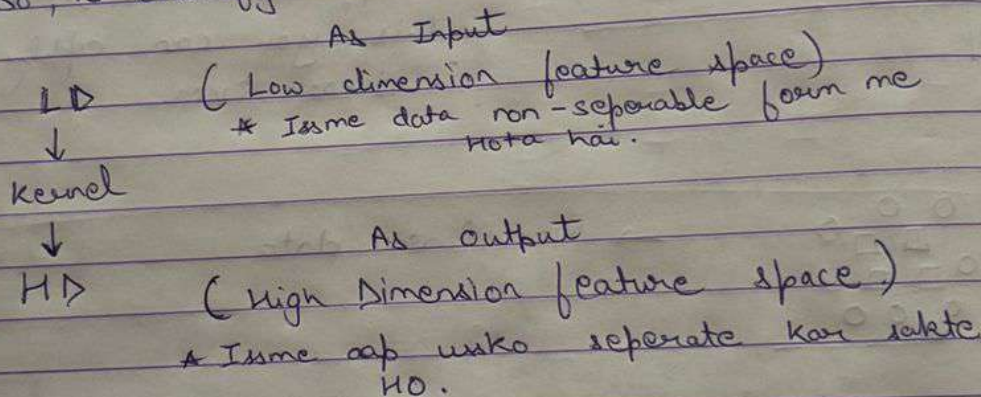 As Input
LD (Low dimension feature space)
* Issme data non-seperable form me
Hota hai.
↓
Kernel
↓ As output
HD (High Dimension feature space)
* Issme aap ussko seperate kar sakte
HO.